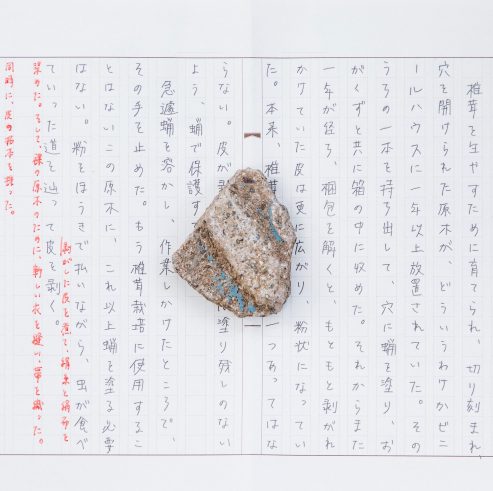 椎茸を生やすために育てられ、切り刻まれ、
穴を開けられた原木が、どういうわけかビニ
ールハウスに一年以上放置されていた。その
うちの一本を持ち出して、穴に蝋を塗り、お
がくずと共に箱の中に収めた。それからまた
一年が経ち、梱包を解くと、もともと剥がれ
かけていた皮は更に広がり、粉状になってい
た。本来、椎茸 一つあってはな
らない。皮が 塗り残しのない
よう、蝋で保護す
急遽蝋を溶かし、作業しかけたところで、
その手を止めた。もう椎茸栽培に使用するこ
とはないこの原木に、これ以上蝋を塗る必要
はない。粉をほうきで払いながら、虫が食べ
ていった道を辿って皮を剥ぐ。
剥がした皮を煮て、絹糸と絹布を
染めた。そして、裸の原木のために、新しい衣を縫い、帯を織った。
同時に、皮の